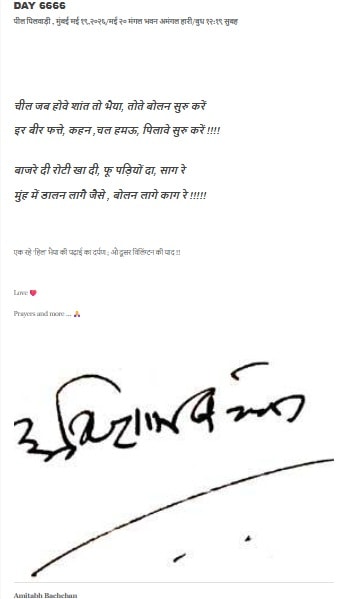 DAY 6666
पील पिलवाड़ी , मुंबई मई १९,२०२६/मई २० मंगल भवन अमंगल हारी/बुध १२:१९ सुबह
चील जब होवे शांत तो भैया, तोते बोलन सुरु करें
इर बीर फत्ते, कहन ,चल हमऊ, पिलावे सुरु करें !!!!
बाजरे दी रोटी खा दी, फू पड़ियों दा, साग रे
मुंह में डालन लागै जैसे , बोलन लागे काग रे !!!!!
एक रहे 'हिल' भैया की पढाई का दर्पण ; औ दुसर विलिंग्टन की याद !!
Love ❤️
Prayers and more ... 🙏
अमिताभ बच्चन
Amitabh Bachchan